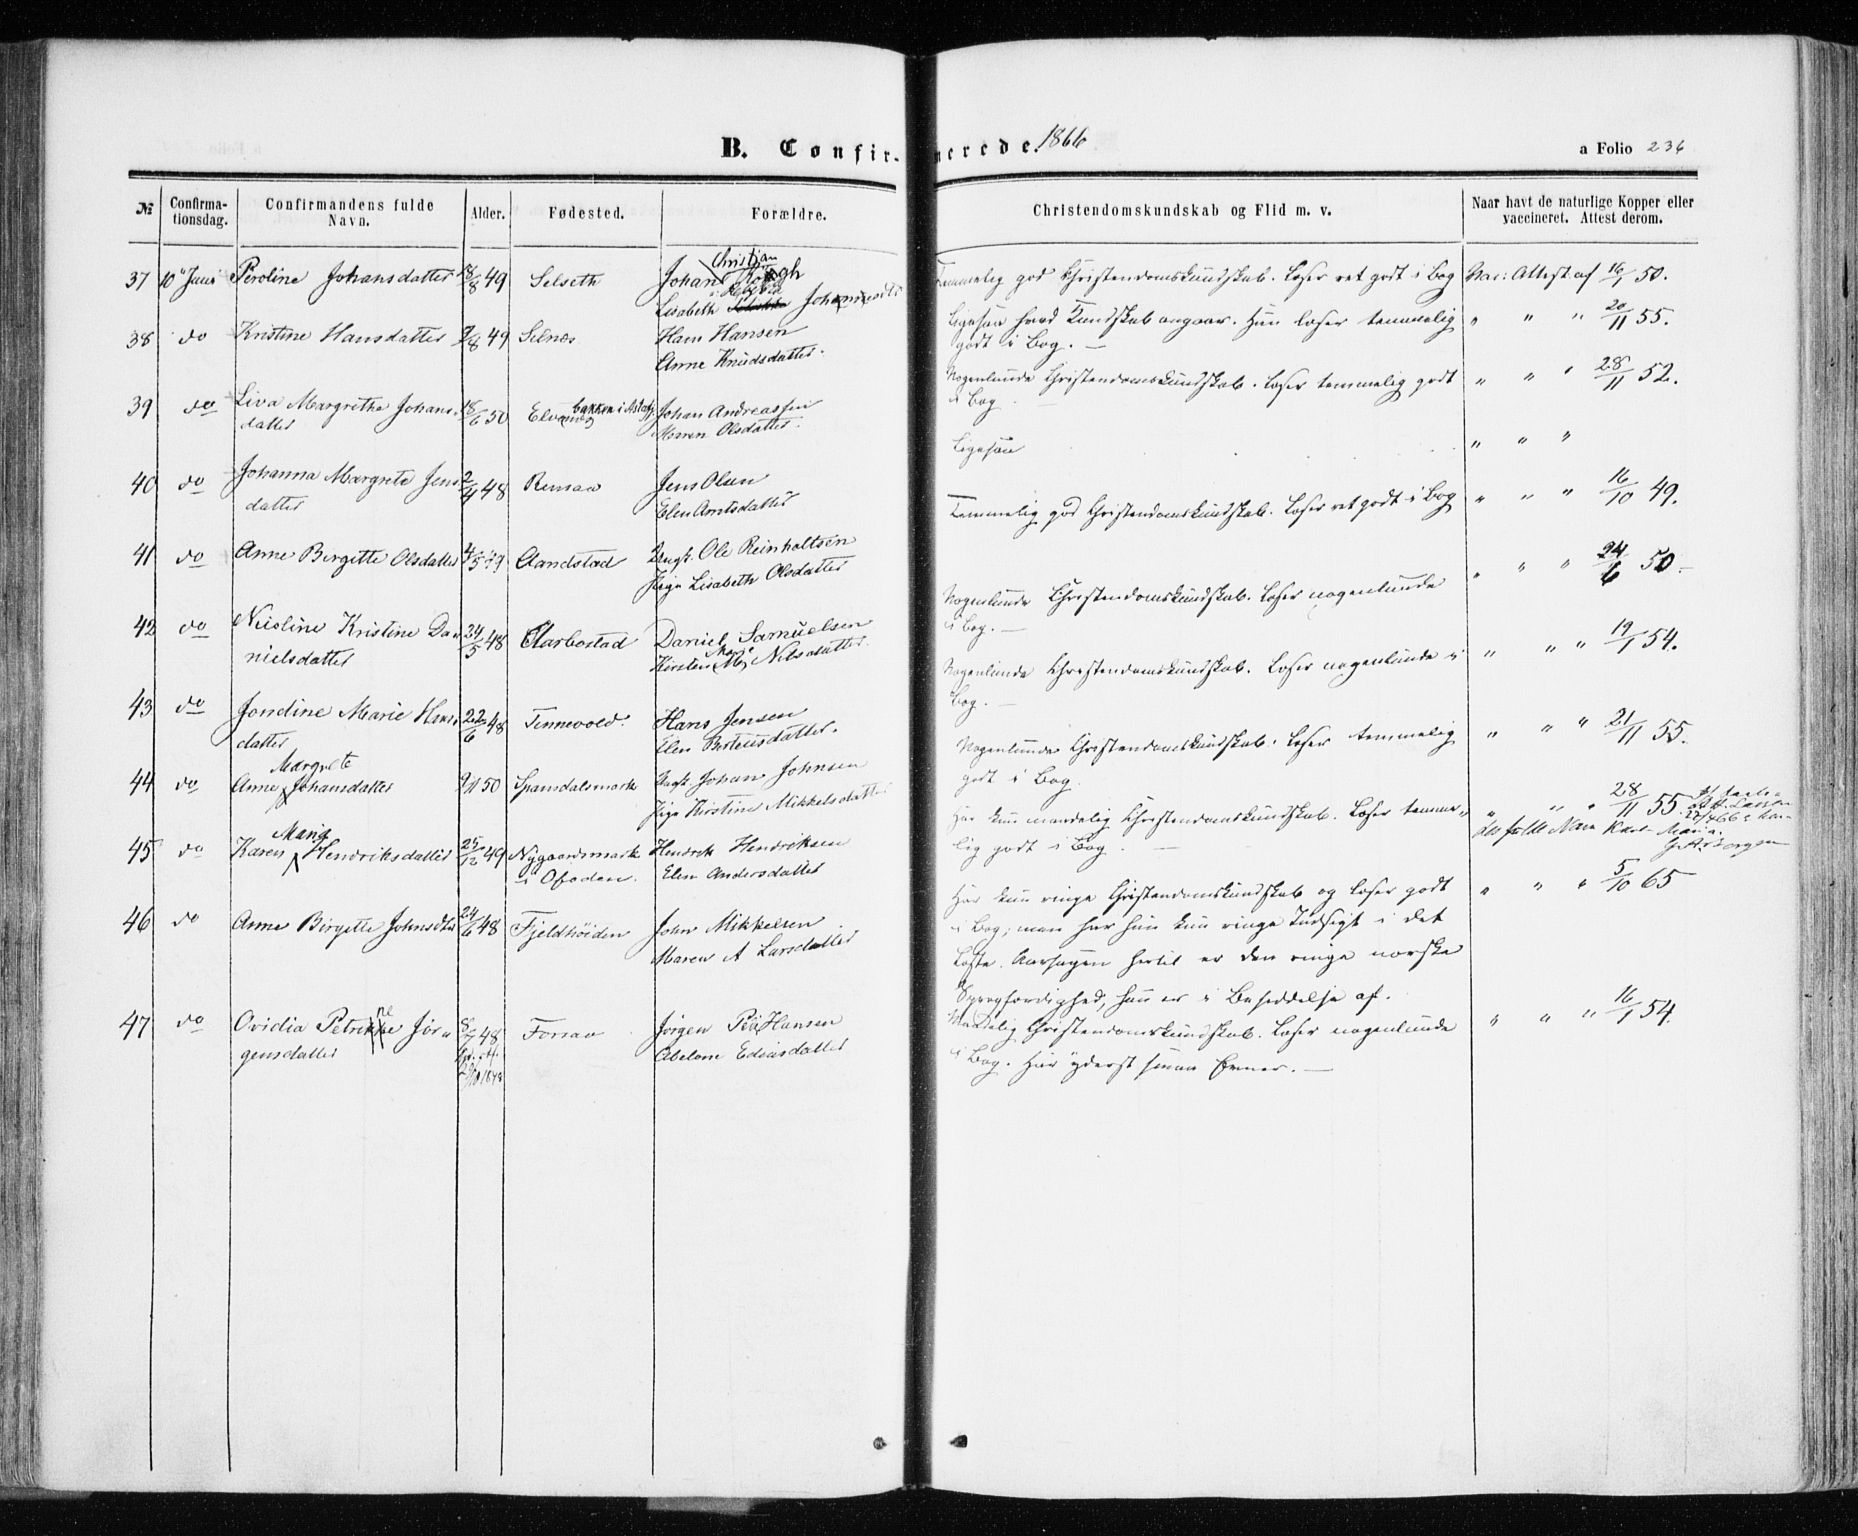 B. Confirmerede. 1866
a Folio 236
№ Confirmationsdag. Confirmandens fulde Navn. Alder. Fødested. Forældre. Christendomskundskab og Flid m. v. Naar havt de naturlige Kopper eller vaccineret. Attest derom.
37 10 Juni Peroline Johansdatter 18/8 49 Selseth Johan Christian Krogh
Lisabeth Johannesdtr
Temmelig god Christendomskundskab. Læser ret godt i Bog Vac: Attest af 16/1 50.
38 do Kristine Hansdatter 7/8 49 Selnes Hans Hansen
Anne Knudsdatter.
Ligesaa hvad Kundskab angaar. Hun læser temmelig " " " 20/11 55.
godt i Bog. —
39 do Liva Margretha Johans- 18/6 50 Elvenæs bakken i Astafj Johan Andreassen
datter Maren Olsdatter.
Nogenlunde Christendomskundskab. Læser temmelig godt " " " 28/11 52.
i Bog
40 do Johanna Margrete Jens 2/4 48 Rensaa Jens Olsen
datter Elen Arntsdatter
Ligesaa " " "
41 do Anne Bergitte Olsdatter 4/5 49 Aandstad Ungk. Ole Reinholtsen
Pige Lisabeth Olsdatter
Temmelig god Christendomskundskab. Læser ret godt i Bog " " " 16/10 49.
42 do Nicoline Kristine Da- 24/5 48 Aarbostad Daniel Samuelsen
nielsdatter Kirsten Marie Nilsdatter.
Nogenlunde Christendomskundskab. Læser nogenlunde " " " 24/6 50.
i Bog. —
43 do Jondine Marie Hans- 22/6 48 Tennevold. Hans Jensen
datter Elen Berteusdatter.
Nogenlunde Christendomskundskab. Læser nogenlunde i " " " 19/1 54.
Bog. —
44 do Anne Margrete Johansdatter 9/1 50 Spansdalsmark Ungk Johan Johnsen
Pige Kirstine Mikkelsdatter
Nogenlunde Christendomskundskab. Læser temmelig " " " 21/11 55.
godt i Bog.
45 do Karen Maria Hendriksdatter 25/12 49 Nygaardsmark Hendrik Hendriksen
i Ofoden. Elen Andersdatter
Har kun maadelig Christendomskundskab. Læser temme- " " " 28/11 55
lig godt i Bog.
46 do Anne Birgette Johnsdtr 24/6 48 Fjeldhöiden John Mikkelsen
Maren A Larsdatter
Har kun ringe Christendomskundskab og læser godt " " " 5/10 65
i Bog; men har kun ringe Indsigt i det
Læste. Aarsagen hertil er den ringe norske
Sprogfærdighed, hun er i Besiddelse af.
47 do Ovidia Petrine Jör- 8/7 48 Forsaa Jörgen Peder Hansen
gensdatter Abelone Ediasdatter
Maadelig Christendomskundskab. Læser nogenlunde " " " 16/1 54.
i Bog. Har yderst smaa Evner. —